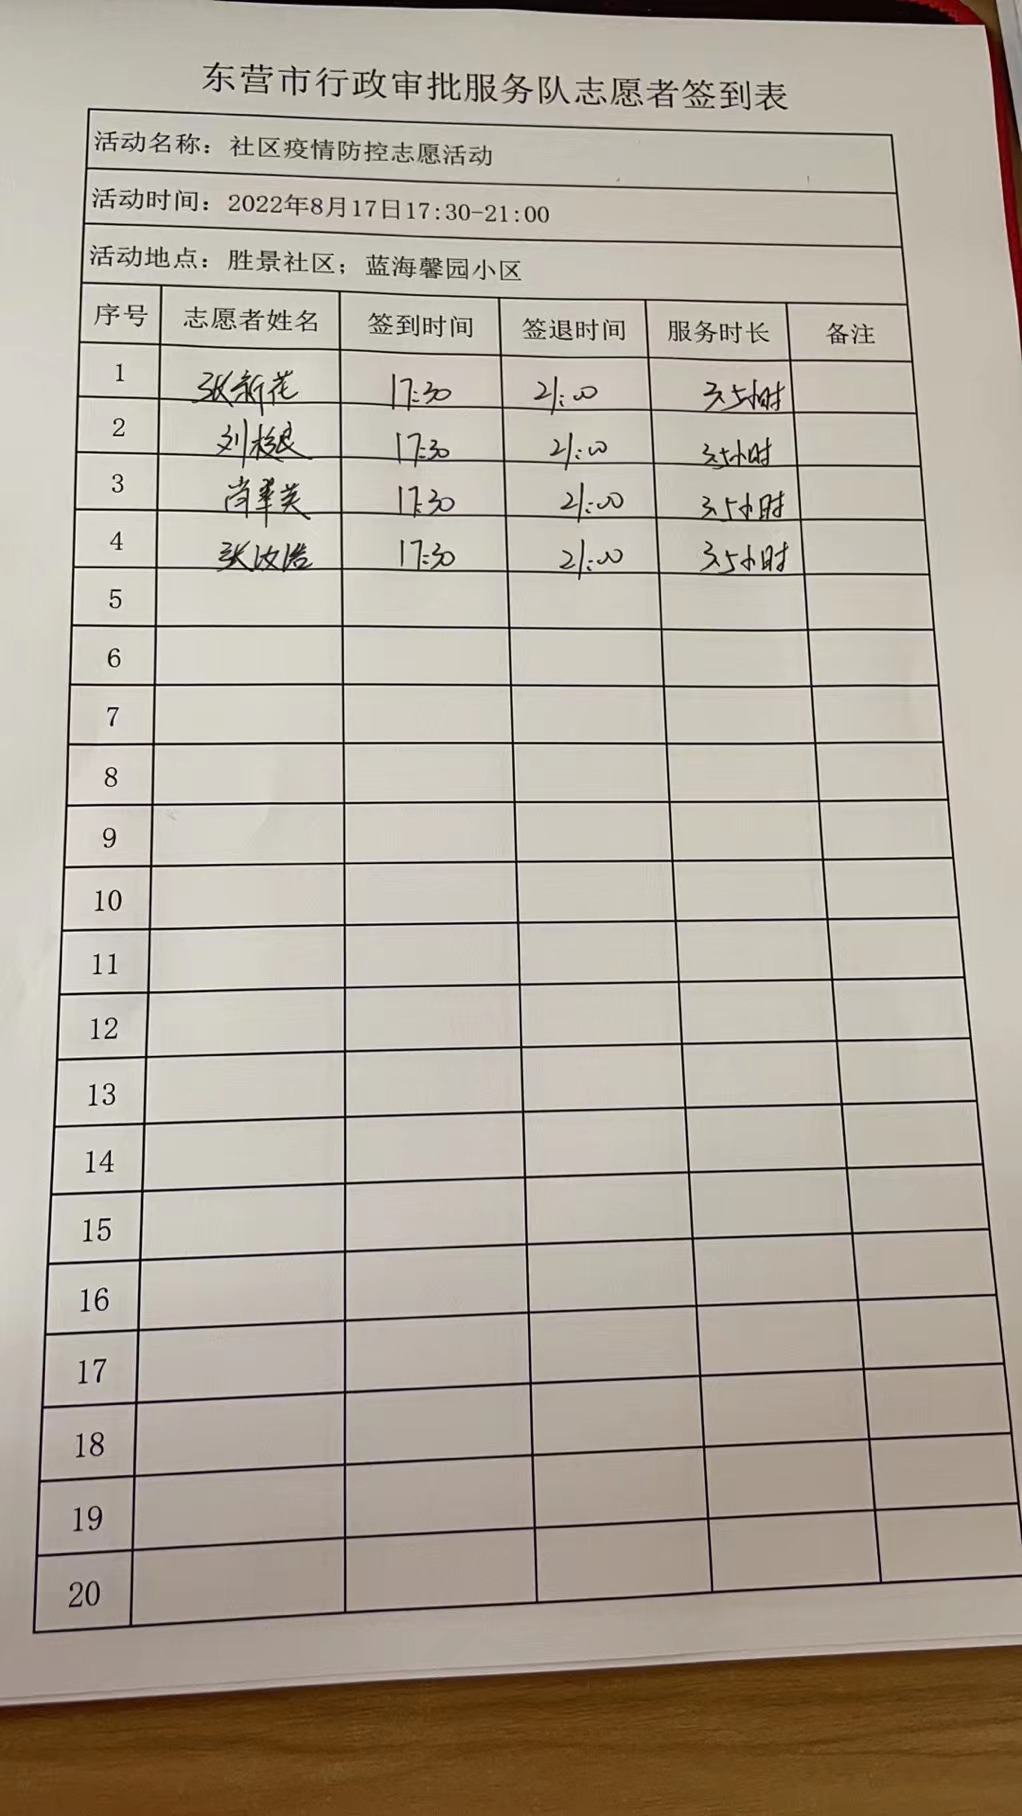 东营市行政审批服务队志愿者签到表
活动名称：社区疫情防控志愿活动
活动时间：2022年8月17日17:30-21:00
活动地点：胜景社区；蓝海馨园小区
序号 志愿者姓名 签到时间 签退时间 服务时长 备注
1 张新花 17:30 21:00 3.5小时
2 刘 17:30 21:00 3.5小时
3 尚翠芙 17:30 21:00 3.5小时
4 张汝浩 17:30 21:00 3.5小时
5
6
7
8
9
10
11
12
13
14
15
16
17
18
19
20